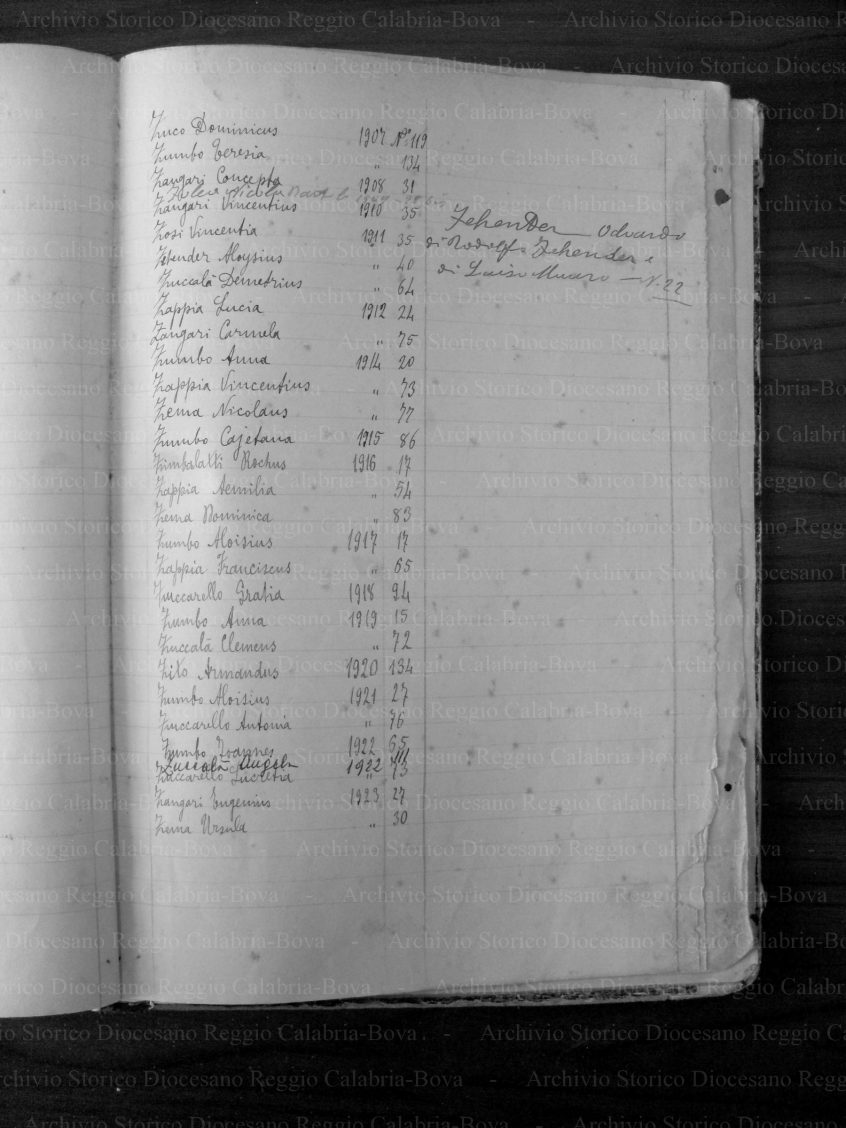 Zuco Dominicus 1907 N° 119
Zumbo Teresia " 134
Zangari Concepta 1908 31
Zangari Vincentius 1910 35
Zosi Vincentia 1911 35
Zehender Aloysius " 40
Zuccalà Demetrius " 64
Zappia Lucia 1912 24
Zangari Carmela " 75
Zumbo Anna 1914 20
Zappia Vincentius " 73
Zema Nicolaus " 77
Zumbo Cajetana 1915 86
Zimbalatti Rochus 1916 17
Zappia Aemilia " 54
Zema Dominica " 83
Zumbo Aloisius 1917 17
Zappia Franciscus " 65
Zuccarello Gratia 1918 94
Zumbo Anna 1919 15
Zuccalà Clemens " 72
Zito Armandus 1920 134
Zumbo Aloisius 1921 27
Zuccarello Antonia " 76
Zumbo Joannes 1922 65
Zuccalà Angela 1922 111
Zuccarello Lucretia " 73
Zangari Eugenius 1923 27
Zema Ursula " 30
Zehender Odoardo
di Rodolfo Zehender e
di Luisa Muaro - N. 22
Archivio Storico Diocesano Reggio Calabria-Bova